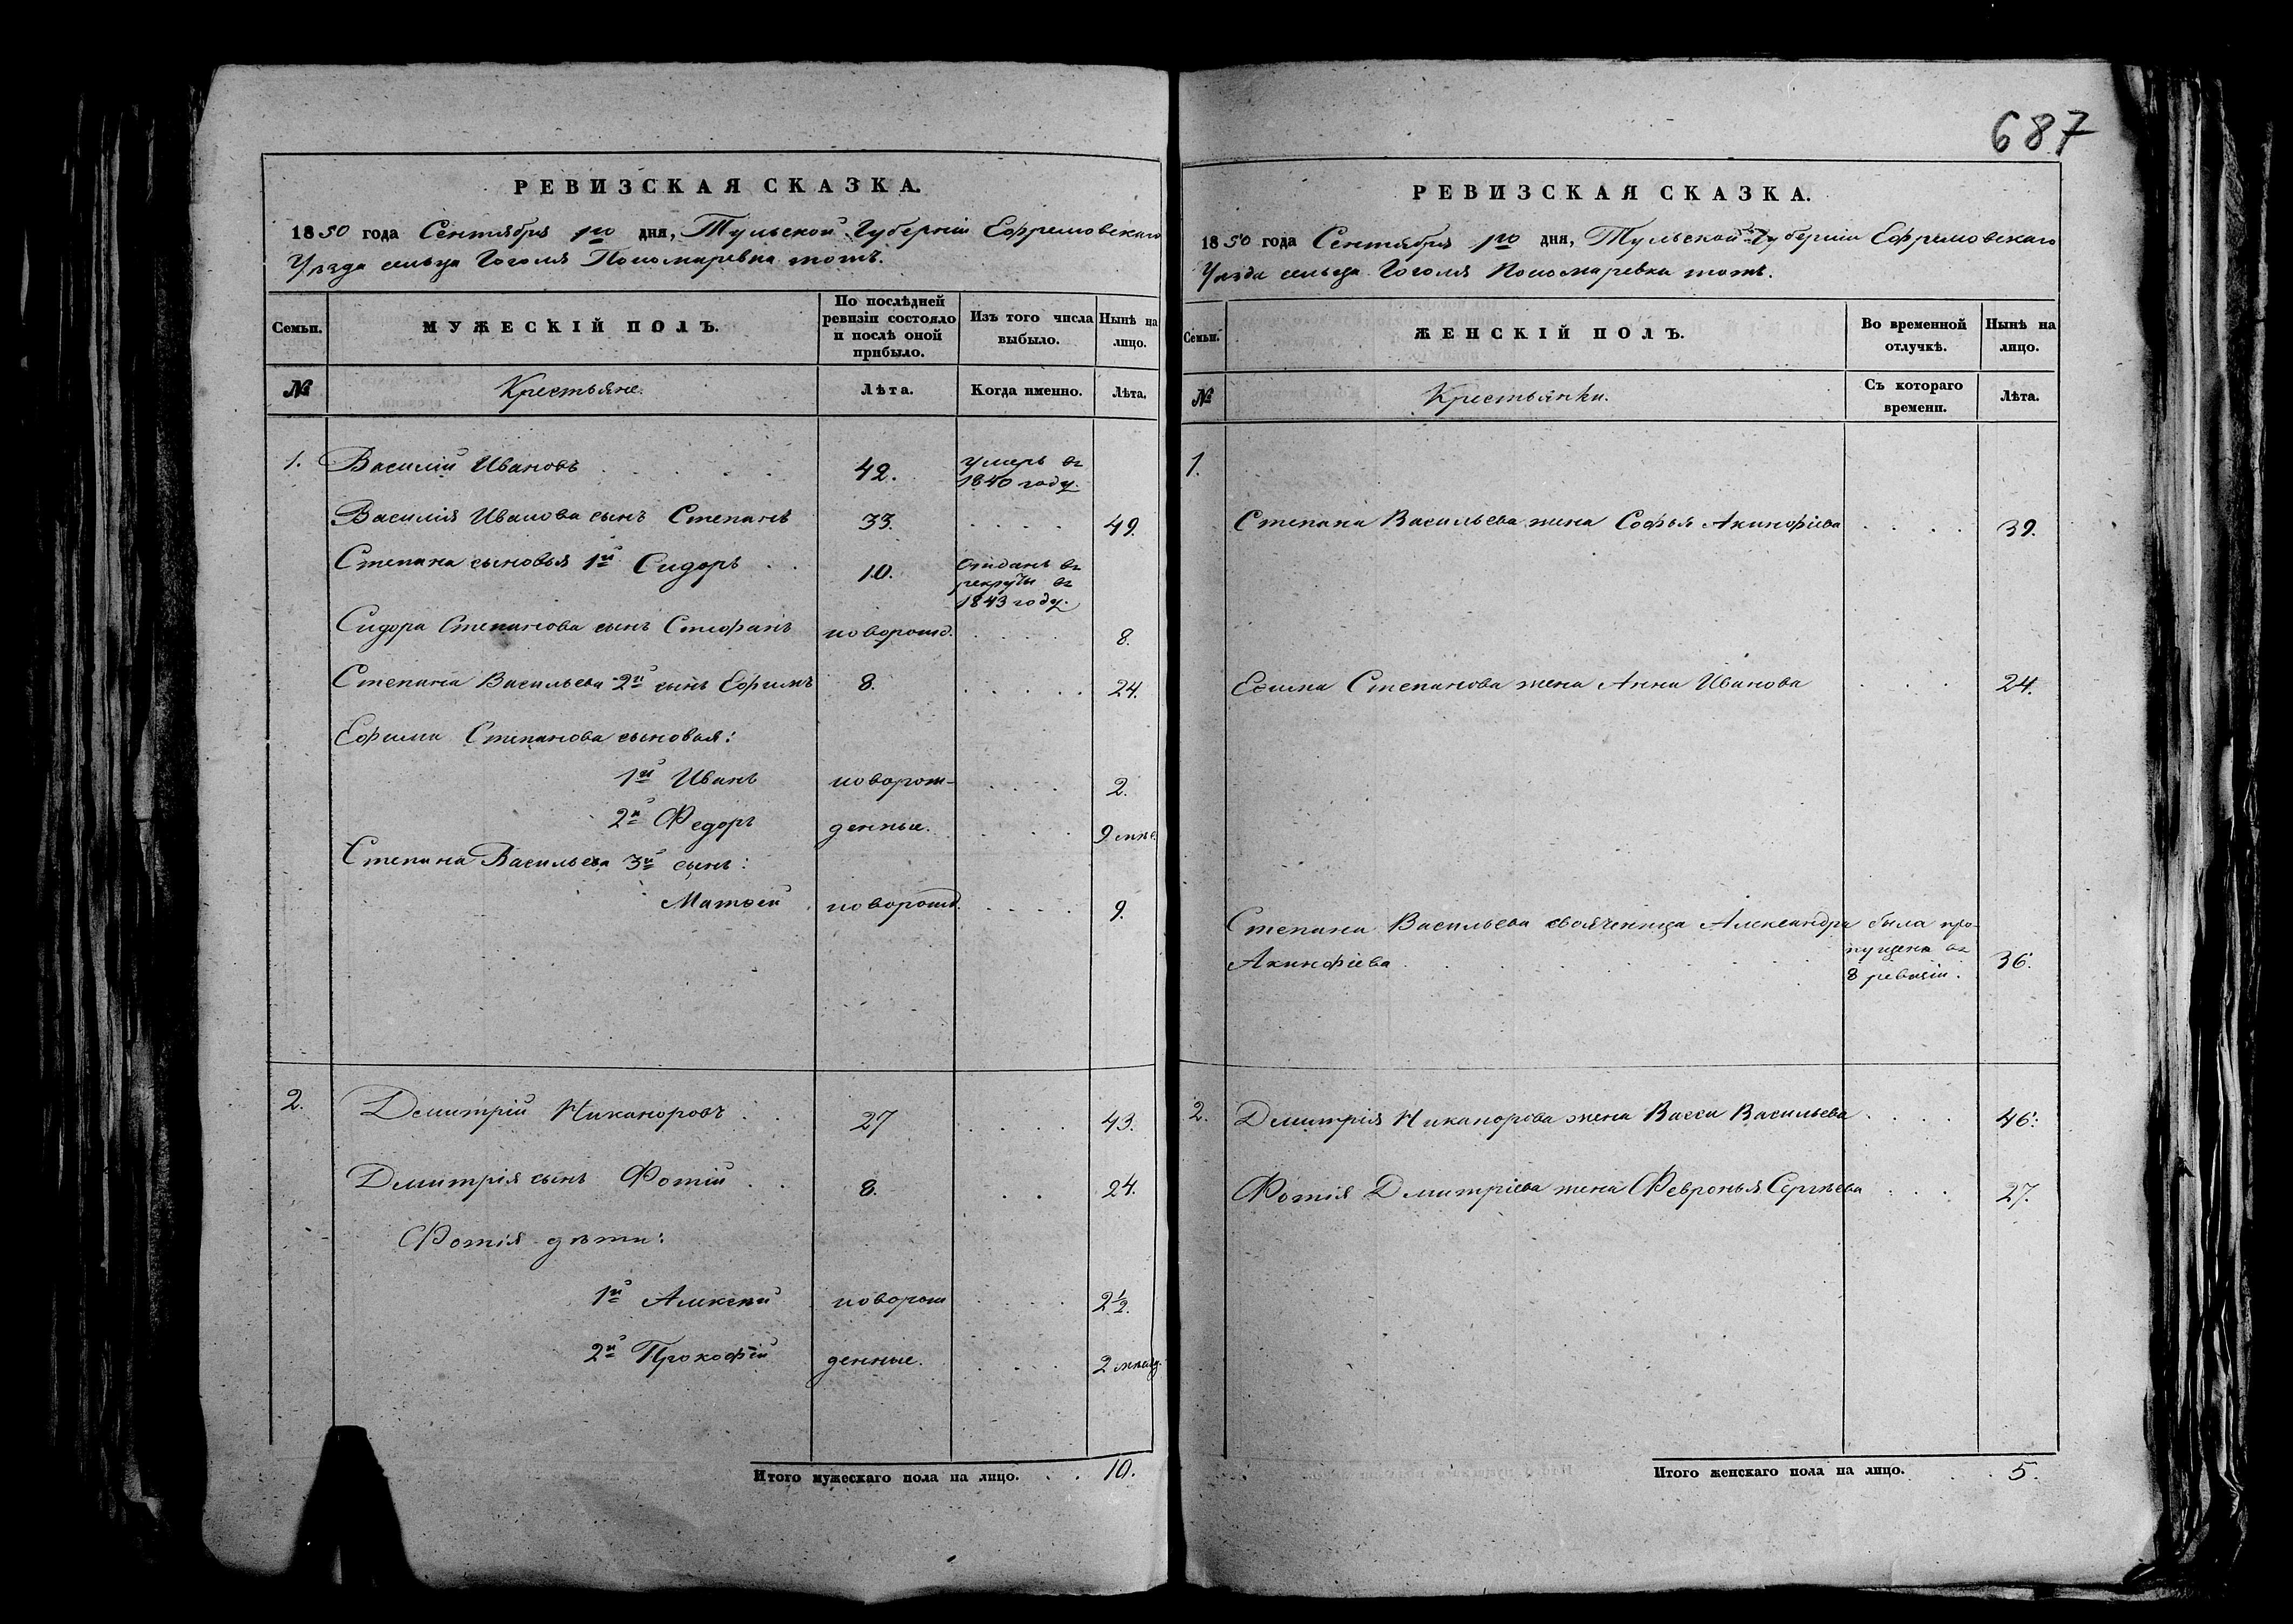 687
РЕВИЗСКАЯ СКАЗКА.
1850 года Сентября 1го дня, Тульской Губерніи Ефремовскаго
Уѣзда сельца Гоголя Пономаревка тожъ.
Семьи. МУЖЕСКІЙ ПОЛЪ. По послѣдней ревизіи состояло и послѣ оной прибыло. Изъ того числа выбыло. Нынѣ на лицо.
№ Крестьяне. Лѣта. Когда именно. Лѣта.
1. Василий Ивановъ 42. умеръ въ
1840 году.
Василія Иванова сынъ Степанъ 33. 49.
Степана сыновья 1й Сидоръ 10. Отданъ въ
рекруты въ
1843 году.
Сидора Степанова сынъ Стефанъ новорожд. 8.
Степана Васильева 2й сынъ Ефимъ 8. 24.
Ефима Степанова сыновья:
1й Иванъ новорож- 2.
2й Федоръ денные. 9 мѣс.
Степана Васильева 3й сынъ:
Матвей новорожд. 9.
2. Дмитрій Никаноровъ 27 43.
Дмитрія сынъ Фотій 8. 24.
Фотія дѣти:
1й Алексей новорож 2 1/2.
2й Прокофій денные. 2 мѣсяц.
Итого мужескаго пола на лицо. 10.
РЕВИЗСКАЯ СКАЗКА.
1850 года Сентября 1го дня, Тульской Губерніи Ефремовскаго
Уѣзда сельца Гоголя Пономаревка тожъ.
Семьи. ЖЕНСКІЙ ПОЛЪ. Во временной отлучкѣ. Нынѣ на лицо.
№ Крестьянки. Съ котораго времени. Лѣта.
1.
Степана Васильева жена Софья Акинфіева 39.
Ефима Степанова жена Анна Иванова 24.
Степана Васильева свояченица Александра была про-
Акинфіева пущена въ 36.
8 ревизіи.
2. Дмитрія Никанорова жена Васса Васильева 46.
Фотія Дмитріева жена Февронья Сергѣева 27.
Итого женскаго пола на лицо. 5.